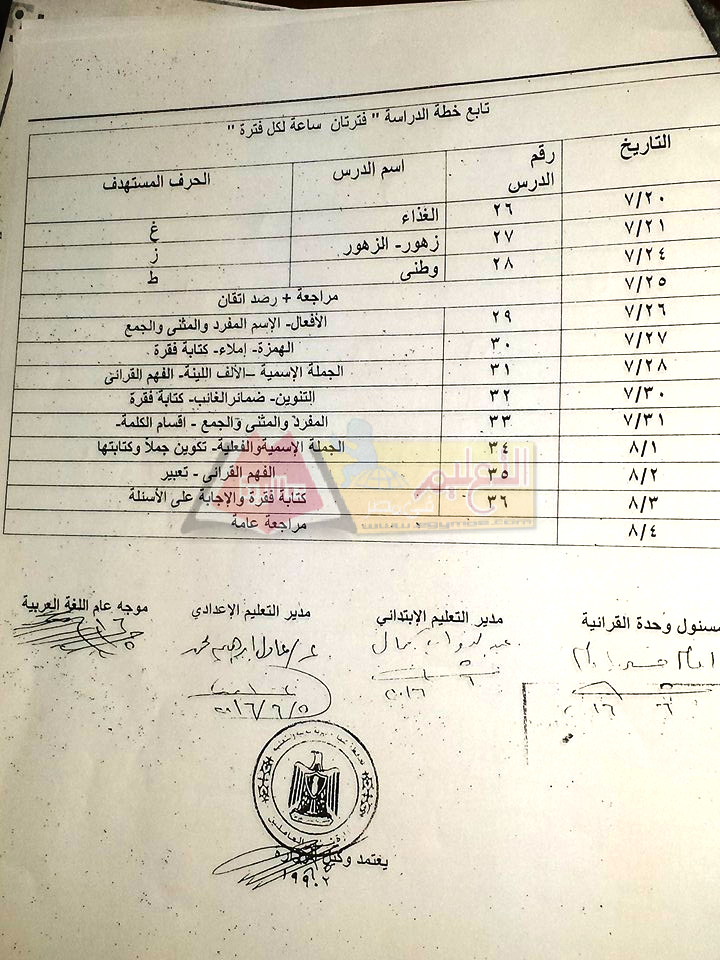 تابع خطة الدراسة " فترتان ساعة لكل فترة "
التاريخ رقم الدرس اسم الدرس الحرف المستهدف
٧/٢٠ ٢٦ الغذاء غ
٧/٢١ ٢٧ زهور- الزهور ز
٧/٢٤ ٢٨ وطنى ط
٧/٢٥ مراجعة + رصد اتقان
٧/٢٦ ٢٩ الأفعال- الإسم المفرد والمثنى والجمع
٧/٢٧ ٣٠ الهمزة- إملاء- كتابة فقرة
٧/٢٨ ٣١ الجملة الإسمية –الألف اللينة- الفهم القرائى
٧/٣٠ ٣٢ التنوين- ضمائر الغائب- كتابة فقرة
٧/٣١ ٣٣ المفرد والمثنى والجمع - اقسام الكلمة-
٨/١ ٣٤ الجملة الإسمية والفعلية- تكوين جملاً وكتابتها
٨/٢ ٣٥ الفهم القرائى - تعبير
٨/٣ ٣٦ كتابة فقرة والإجابة على الأسئلة
٨/٤ مراجعة عامة
التعليم
مسئول وحدة القرائية مدير التعليم الإبتدائي مدير التعليم الإعدادي موجه عام اللغة العربية
٢٠١٦/٦/٥
يعتمد وكيل